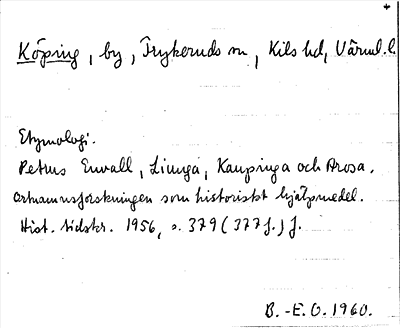 Köping, by, Frykeruds sn, Kils hd, Värml. l.
Etymologi.
Petrus Envall, Liunga, Kaupinga och Arosa.
Ortnamnsforskningen som historiskt hjälpmedel.
Hist. tidskr. 1956, s. 379 (377 f.) f.
B.-E. O. 1960.